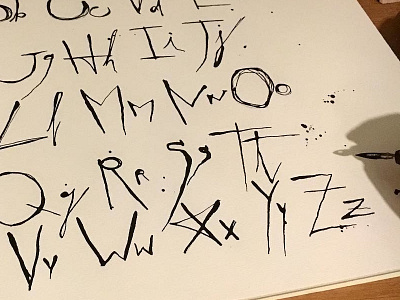 Bb Cc Dd E
Gg Hh Ii Jj
Ll Mm Nn Oo
Qq Rr Ss Tt
Vv Ww Xx Yy Zz